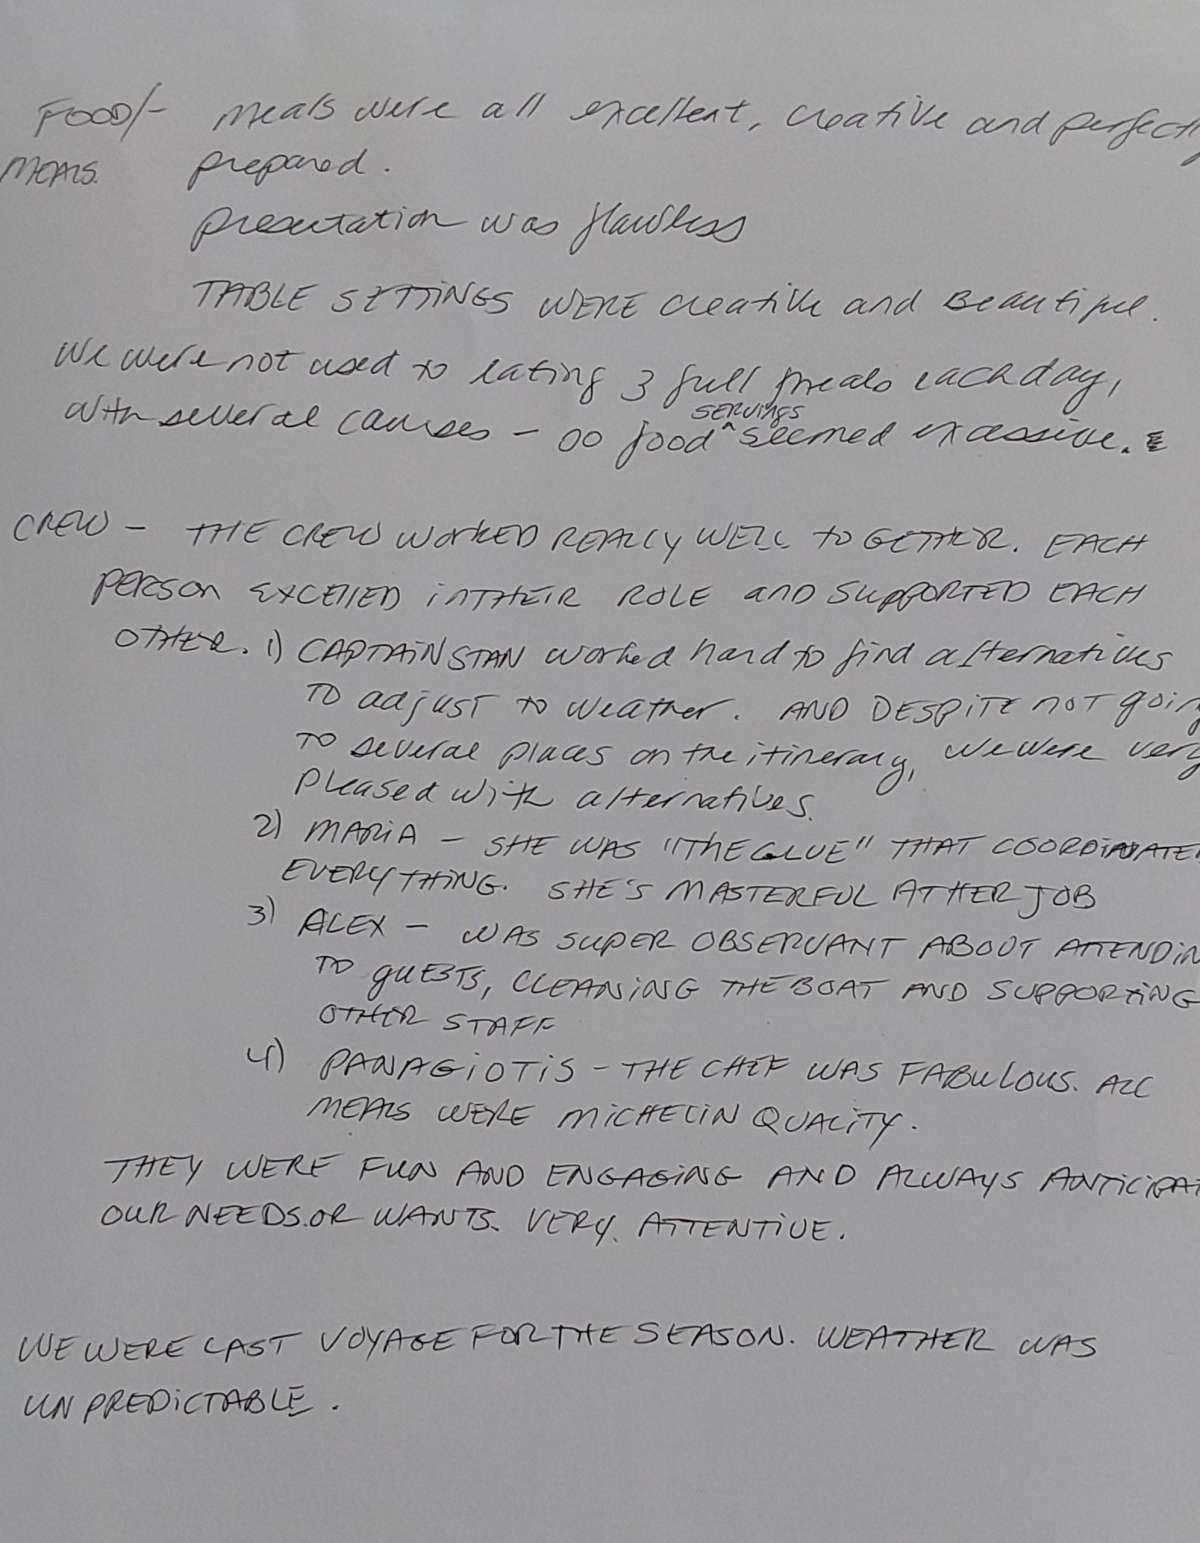 FOOD/- meals were all excellent, creative and perfectly
MEALS. prepared.
presentation was flawless
TABLE SETTINGS WERE creative and Beautiful.
We were not used to eating 3 full meals each day,
with several courses - so food ^ SERVINGS seemed excessive.
CREW - THE CREW WORKED REALLY WELL TOGETHER. EACH
person EXCELLED in THEIR ROLE and SUPPORTED EACH
OTHER. 1) CAPTAIN STAN worked hard to find alternatives
TO adjust to weather. AND DESPITE NOT goin
TO several places on the itinerary, we were very
pleased with alternatives.
2) MARIA - SHE WAS "THE GLUE" THAT COORDINATE
EVERYTHING. SHE'S MASTERFUL AT HER JOB
3) ALEX - WAS SUPER OBSERVANT ABOUT ATTENDIN
TO guESTS, CLEANING THE BOAT AND SUPPORTING
OTHER STAFF
4) PANAGIOTIS - THE CHEF WAS FABULOUS. ALL
MEALS WERE MICHELIN QUALITY.
THEY WERE FUN AND ENGAGING AND ALWAYS ANTICIPAT
OUR NEEDS OR WANTS. VERY ATTENTIVE.
WE WERE LAST VOYAGE FOR THE SEASON. WEATHER WAS
UNPREDICTABLE.